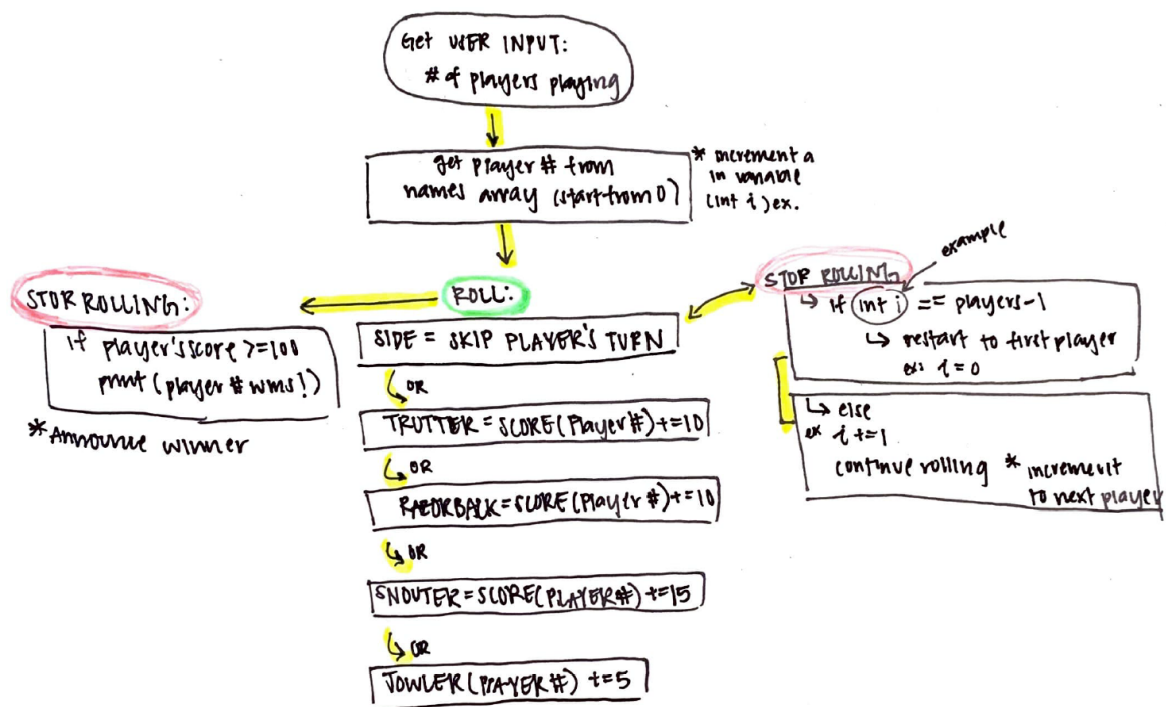 Get USER INPUT:
# of players playing
get player # from
names array (start from 0)
* increment a
in variable
(int i) ex.
STOP ROLLING:
if player's score >=100
print (player # wins!)
* Announce winner
ROLL:
SIDE = SKIP PLAYER'S TURN
OR
TROTTER = SCORE(Player #) +=10
OR
RAZORBACK = SCORE(Player #) +=10
OR
SNOUTER = SCORE(PLAYER #) +=15
OR
JOWLER (PLAYER #) +=5
example
STOP ROLLING
↳ if int i == players-1
↳ restart to first player
ex: i = 0
↳ else
ex i +=1
continue rolling * increment
to next player